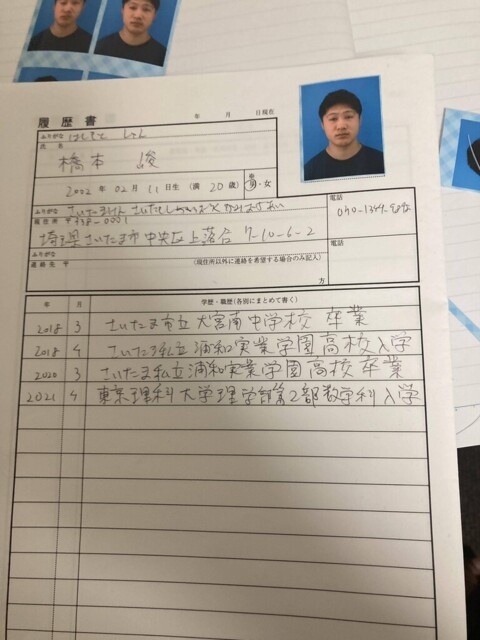 履歴書 年 月 日現在
ふりがな はしもと しゅん
氏名 橋本 駿
2002年 02月 11日生 (満 20歳) 男・女
ふりがな さいたまけん さいたまし ちゅうおうく かみおちあい
現住所 〒338-0001
埼玉県さいたま市中央区上落合 7-10-6-2
電話
ふりがな
連絡先 〒 (現住所以外に連絡を希望する場合のみ記入)
方
電話
年 月 学歴・職歴(各別にまとめて書く)
2018 3 さいたま市立大宮南中学校 卒業
2018 4 さいたま私立浦和実業学園高校入学
2020 3 さいたま私立浦和実業学園高校卒業
2021 4 東京理科大学理学部第2部数学科入学